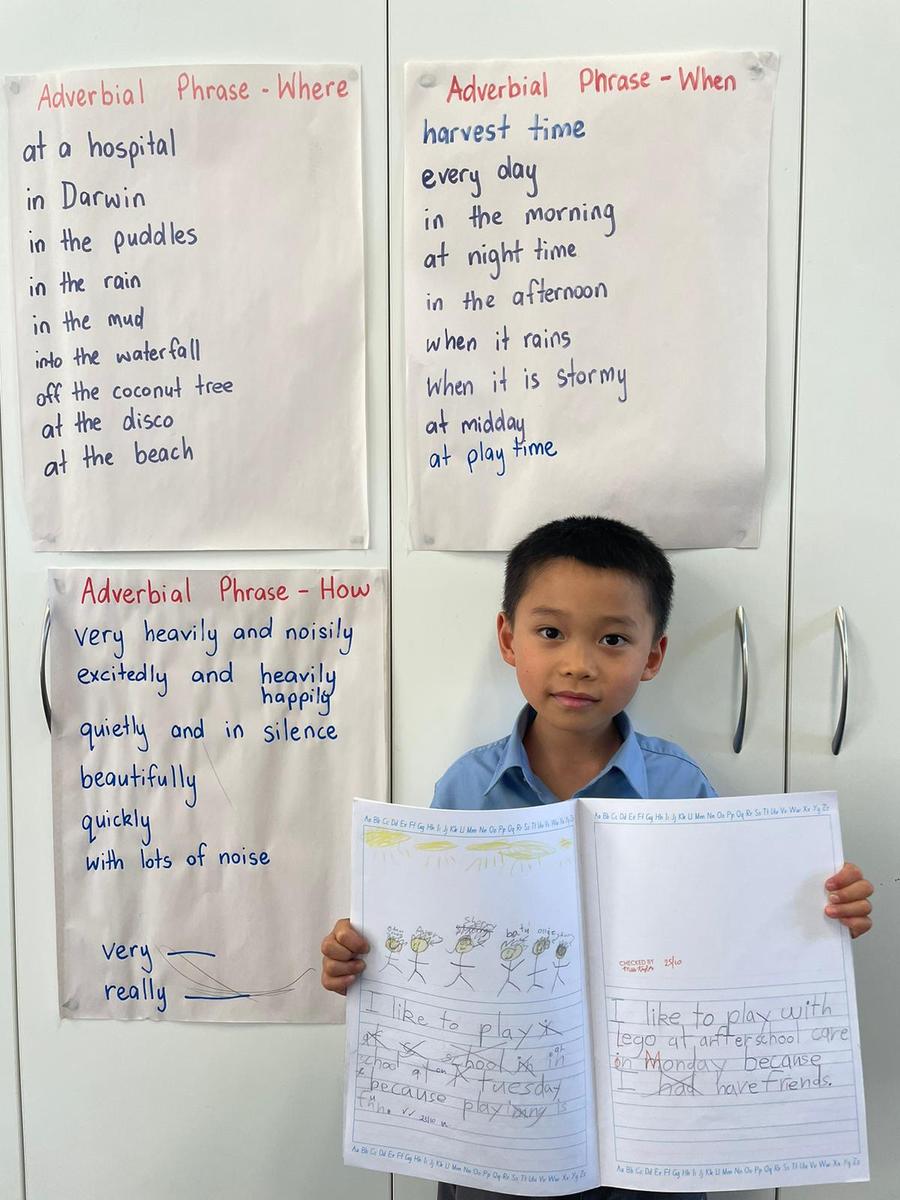 Adverbial Phrase - Where
at a hospital
in Darwin
in the puddles
in the rain
in the mud
into the waterfall
off the coconut tree
at the disco
at the beach
Adverbial Phrase - When
harvest time
every day
in the morning
at night time
in the afternoon
when it rains
When it is stormy
at midday
at play time
Adverbial Phrase - How
very heavily and noisily
excitedly and heavily
happily
quietly and in silence
beautifully
quickly
with lots of noise
very
really
Aa Bb Cc Dd Ee Ff Gg Hh Ii Jj Kk Ll Mm Nn Oo Pp Qq Rr Ss Tt Uu Vv
I like to play
school in at
school at on Tuesday
because playing is
fun. 25/10
Aa Bb Cc Dd Ee Ff Gg Hh Ii Jj Kk Ll Mm Nn Oo Pp Qq Rr Ss Tt Uu Vv Ww Xx Yy Zz
Aa Bb Cc Dd Ee Ff Gg Hh Ii Jj Kk Ll Mm Nn Oo Pp Qq Rr Ss Tt Uu Vv Ww Xx Yy Zz
CHECKED BY 25/10
I like to play with
Lego at arfterschool care
on Monday because
I had have friends.
Aa Bb Cc Dd Ee Ff Gg Hh Ii Jj Kk Ll Mm Nn Oo Pp Qq Rr Ss Tt Uu Vv Ww Xx Yy Zz